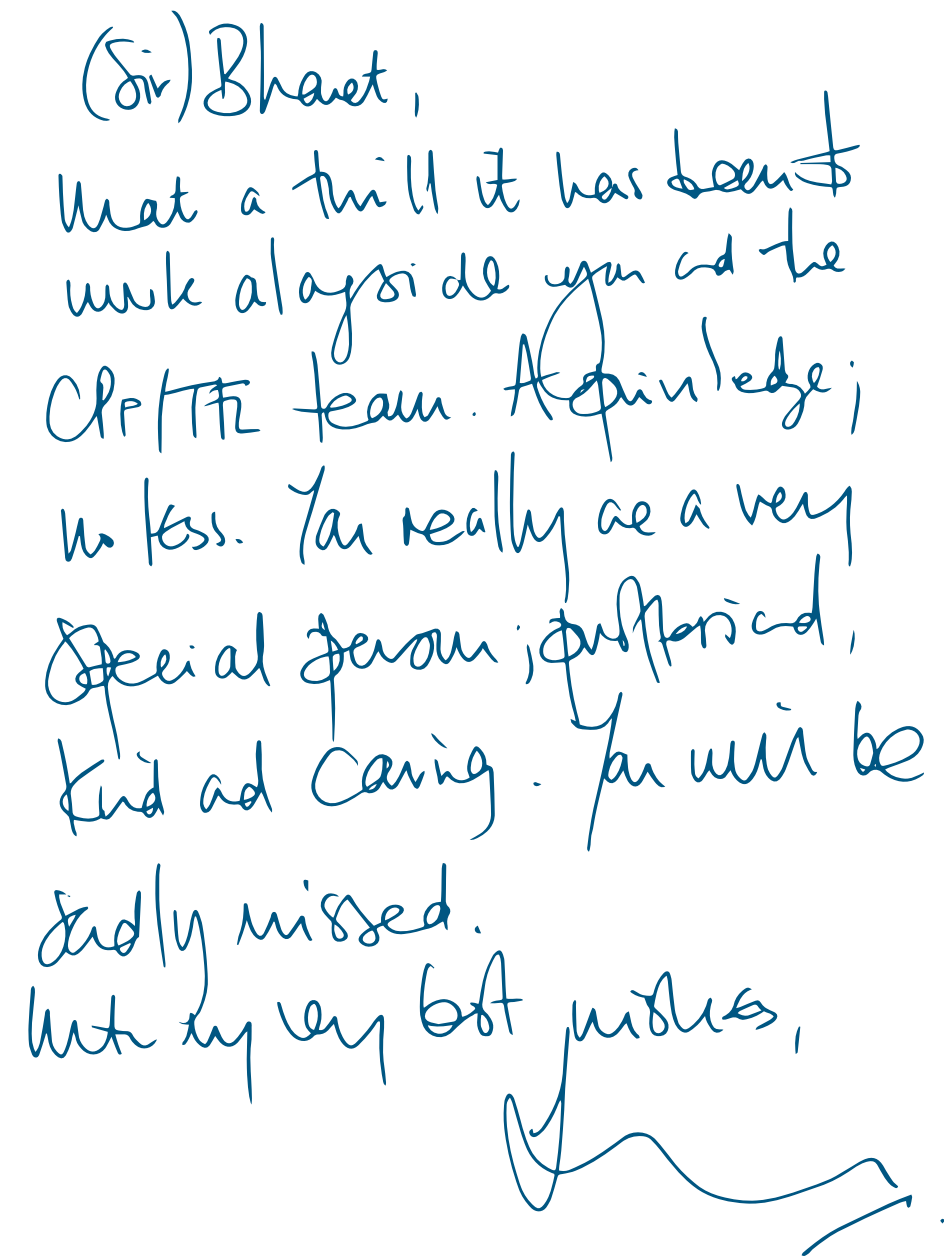 (Sir) Bharet,
What a thrill it has been to
work alongside you and the
team. A privilege;
no less. You really are a very
special person; professional,
kind and caring. You will be
sadly missed.
With my very best wishes,